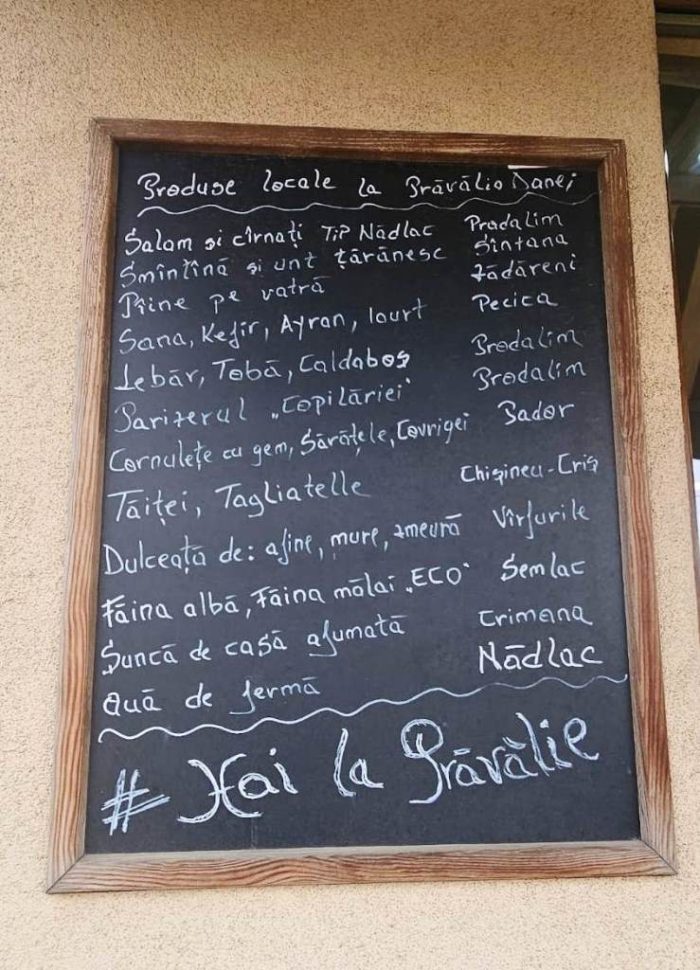 Produse locale la Prăvălia Danei
Salam și cîrnați TiP Nădlac Prodalim
Smîntînă și unt țărănesc Sîntana
Pîine pe vatră Zădăreni
Sana, Kefir, Ayran, Iaurt Pecica
Lebăr, Tobă, Caldaboș Prodalim
Parizerul „Copilăriei" Prodalim
Cornulețe cu gem, Sărățele, Covrigei Bador
Tăiței, Tagliatelle Chișineu-Criș
Dulceață de: afine, mure, zmeură Vîrfurile
Făina albă, Făina mălai „ECO" Semlac
Șuncă de casă afumată Crimana
Ouă de fermă Nădlac
# Hai la Prăvălie